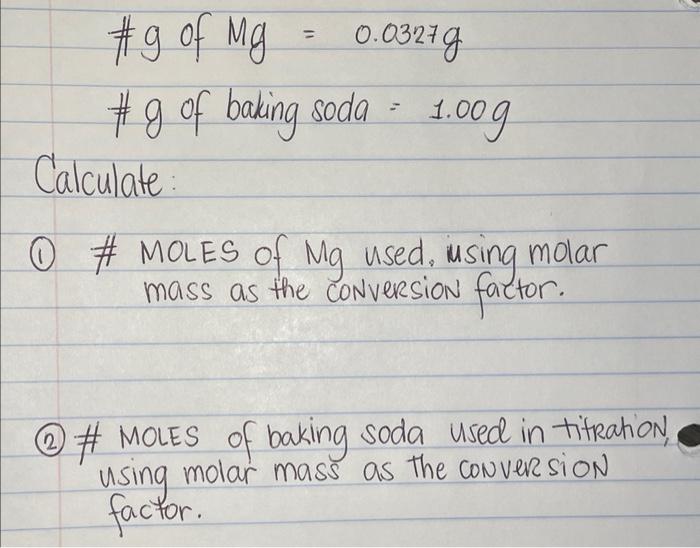 # g of Mg = 0.0327g
# g of baking soda = 1.00g
Calculate:
① # MOLES of Mg used, using molar
mass as the conversion factor.
② # MOLES of baking soda used in titration,
using molar mass as the conversion
factor.